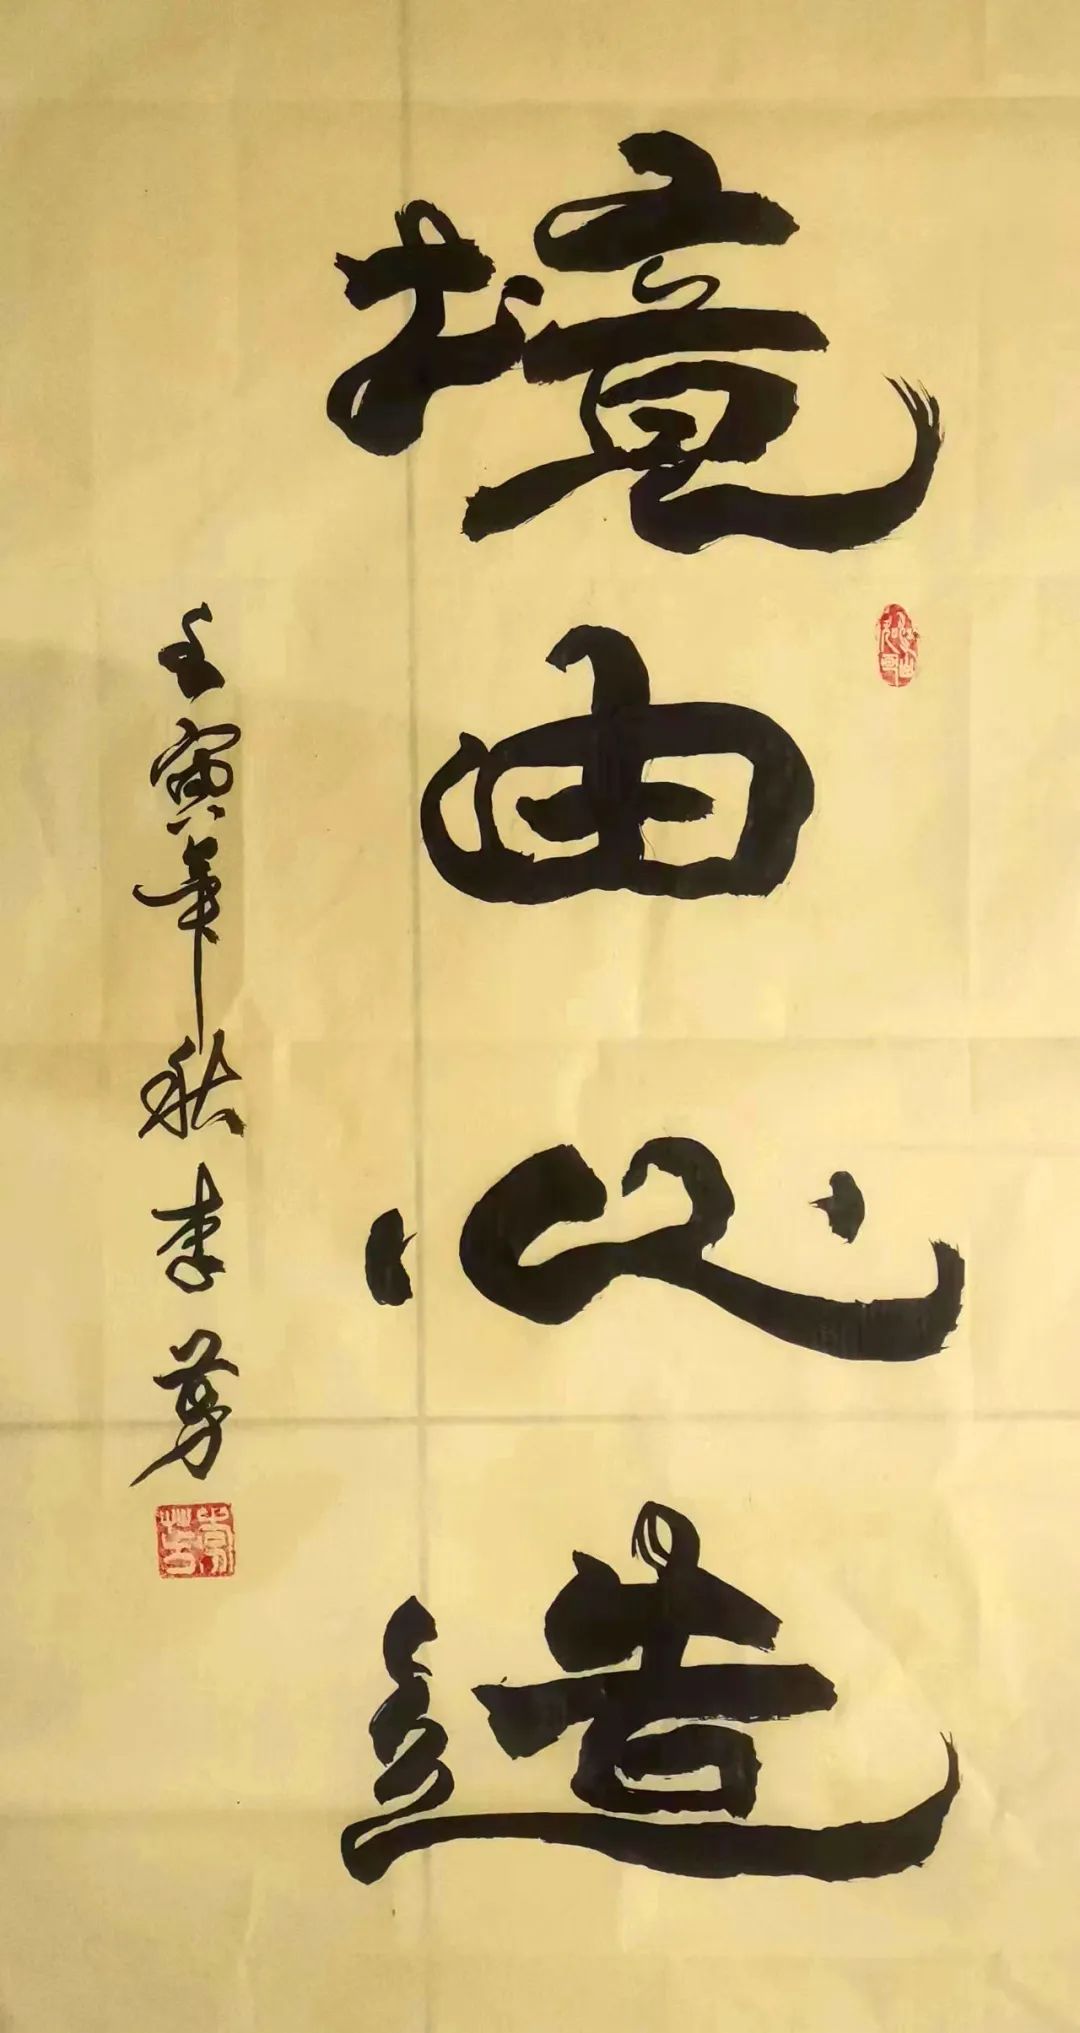 境由心造
壬寅年秋李勇